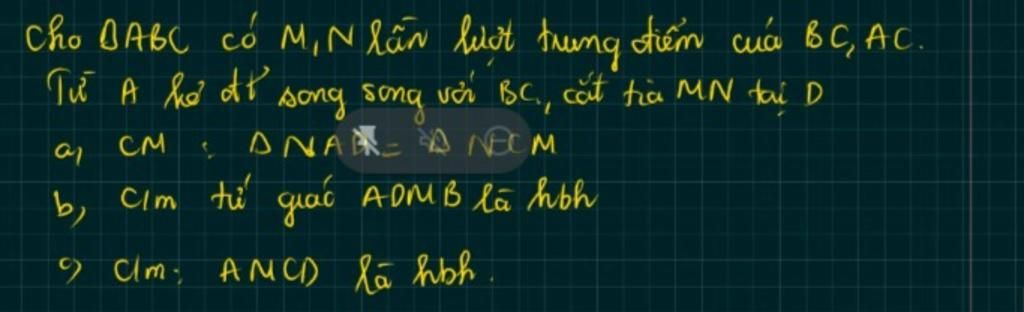 Cho ΔABC có M, N lần lượt trung điểm cuả BC, AC.
Từ A kẻ đt song song với BC, cắt tia MN tại D
a, CM : ΔNAD = ΔNCM
b, C/m tứ giác ADMB là hbh
c) C/m: AMCD là hbh.